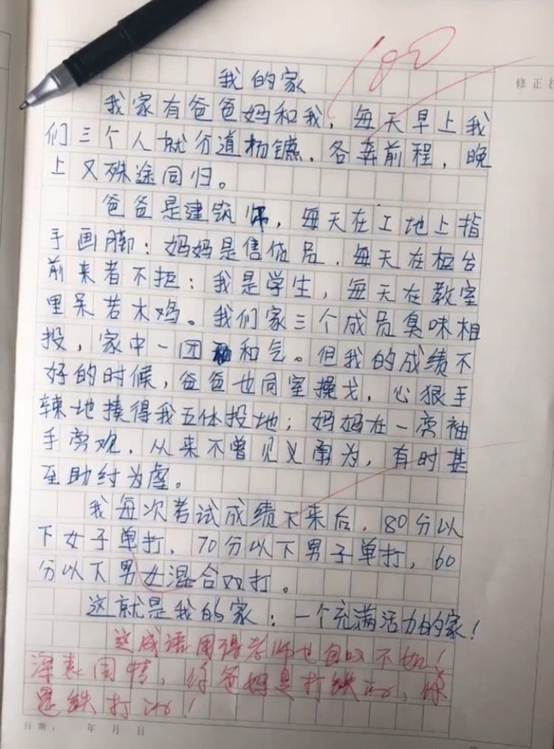 100
修正栏
我的家
我家有爸爸妈和我，每天早上我
们三个人就分道杨镳，各奔前程，晚
上又殊途同归。
爸爸是建筑师，每天在工地上指
手画脚；妈妈是售货员，每天在柜台
前来者不拒；我是学生，每天在教室
里呆若木鸡。我们家三个成员臭味相
投，家中一团和气。但我的成绩不
好的时候，爸爸也同室操戈，心狠手
辣地揍得我五体投地；妈妈在一旁袖
手旁观，从来不曾见义勇为，有时甚
至助纣为虐。
我每次考试成绩下来后，80分以
下女子单打，70分以下男子单打，60
分以下男女混合双打。
这就是我的家：一个充满活力的家！
这成语用得老师也自叹不如！
深表同情，你爸妈是打铁的，你
是铁打的！
日期： 年 月 日